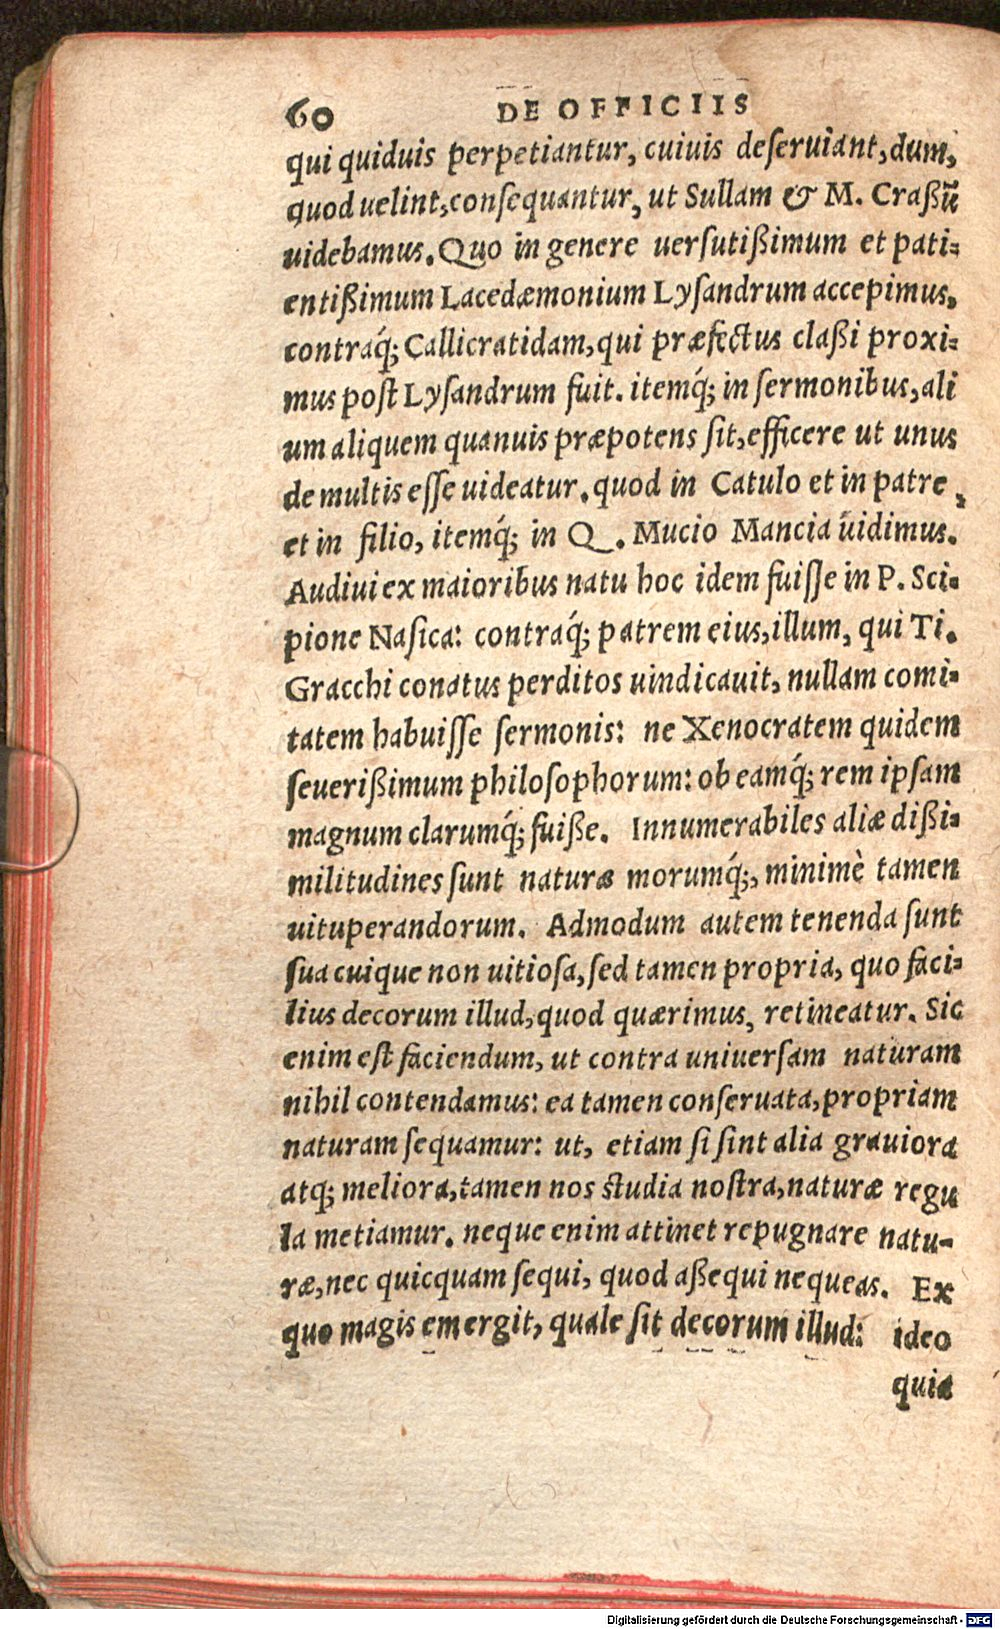 60 DE OFFICIIS
qui quiduis perpetiantur, cuiuis deſeruiant, dum,
quod uelint, conſequantur, ut Sullam & M. Craßū
uidebamus. Quo in genere uerſutißimum et pati-
entißimum Lacedæmonium Lyſandrum accepimus,
contraq́; Callicratidam, qui præfectus claßi proxi-
mus poſt Lyſandrum fuit. itemq́; in ſermonibus, ali
um aliquem quanuis præpotens ſit, efficere ut unus
de multis eſſe uideatur. quod in Catulo et in patre,
et in filio, itemq́; in Q. Mucio Mancia uidimus.
Audiui ex maioribus natu hoc idem fuiſſe in P. Sci-
pione Naſica: contraq́; patrem eius, illum, qui Ti.
Gracchi conatus perditos uindicauit, nullam comi-
tatem habuiſſe ſermonis: ne Xenocratem quidem
ſeuerißimum philoſophorum: ob eamq́; rem ipſam
magnum clarumq́; fuiße. Innumerabiles aliæ dißi-
militudines ſunt naturæ morumq́;, minimè tamen
uituperandorum. Admodum autem tenenda ſunt
ſua cuique non uitioſa, ſed tamen propria, quo faci-
lius decorum illud, quod quærimus, retineatur. Sic
enim eſt faciendum, ut contra uniuerſam naturam
nihil contendamus: ea tamen conſeruata, propriam
naturam ſequamur: ut, etiam ſi ſint alia grauiora
atq; meliora, tamen nos ſtudia noſtra, naturæ regu
la metiamur. neque enim attinet repugnare natu-
ræ, nec quicquam ſequi, quod aßequi nequeas. Ex
quo magis emergit, quale ſit decorum illud: ideo
quia
Digitalisierung gefördert durch die Deutsche Forschungsgemeinschaft - DFG